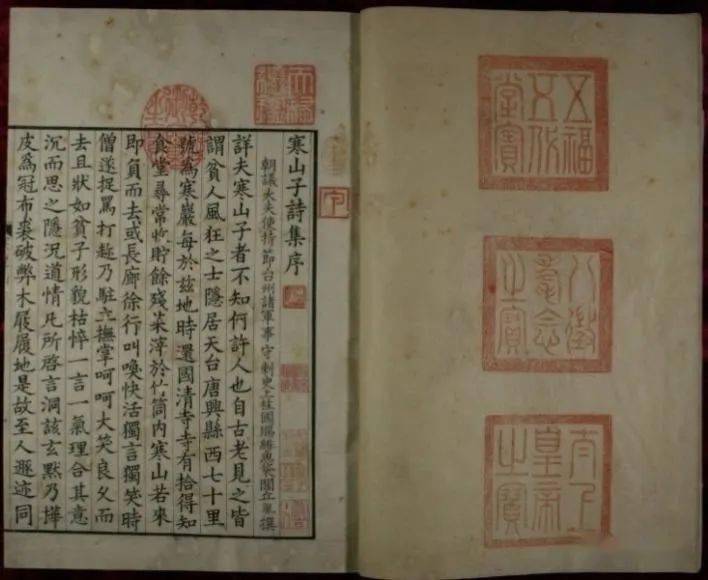 五福五代堂寶
八徵耄念之寶
太上皇帝之寶
天祿繼鑑
寒山子詩集序
朝議大夫使持節台州諸軍事守刺史上柱國賜緋魚袋閭丘胤撰
詳夫寒山子者不知何許人也自古老見之皆
謂貧人風狂之士隱居天台唐興縣西七十里
號為寒巖每於茲地時還國清寺寺有拾得知
食堂尋常收貯餘殘菜滓於竹筒內寒山若來
即負而去或長廊徐行叫喚快活獨言獨笑時
僧遂捉罵打趁乃駐立撫掌呵呵大笑良久而
去且狀如貧子形貌枯悴一言一氣理合其意
沉而思之隱況道情凡所啓言洞該玄默乃樺
皮為冠布裘破弊木屐履地是故至人遯迹同